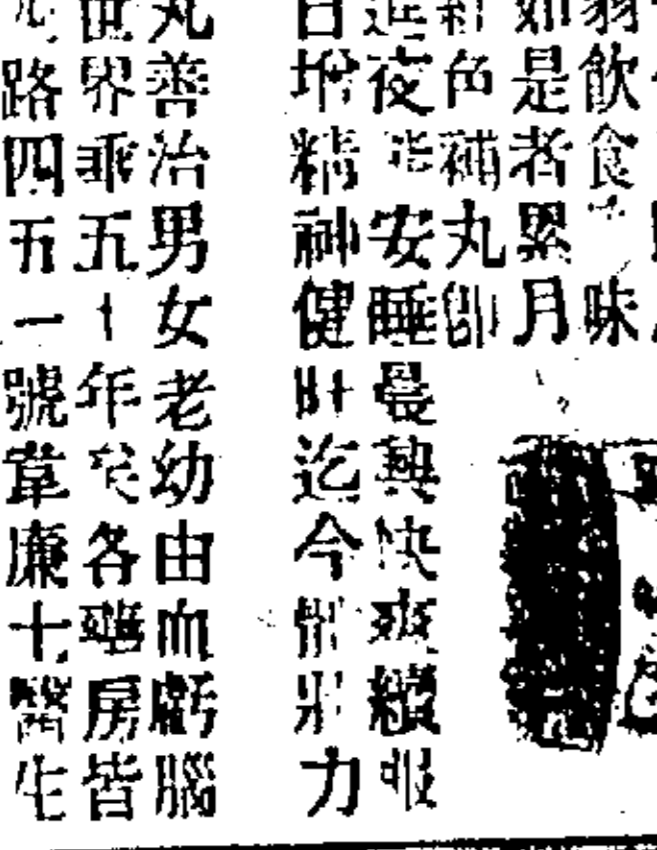 弱飲食味
如是者累月
紅色補丸卽
進夜能安睡晨興快爽續服
日增精神健旺迄今體力
丸善治男女老幼由血虧腦
世界乖五十年矣各藥房皆
路四五一號韋廉士醫生